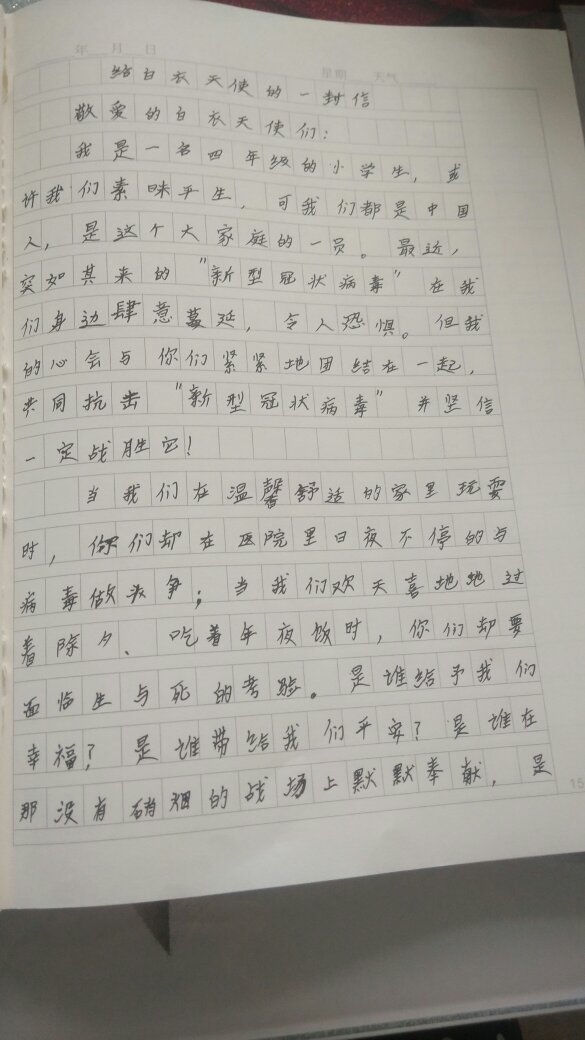 年 月 日
星期 天气
给白衣天使的一封信
敬爱的白衣天使们：
我是一名四年级的小学生，或
许我们素昧平生，可我们都是中国
人，是这个大家庭的一员。最近，
突如其来的"新型冠状病毒"在我
们身边肆意蔓延，令人恐惧。但我
的心会与你们紧紧地团结在一起，
共同抗击"新型冠状病毒"并坚信
一定战胜它！
当我们在温馨舒适的家里玩耍
时，你们却在医院里日夜不停的与
病毒做斗争；当我们欢天喜地地过
着除夕、吃着年夜饭时，你们却要
面临生与死的考验。是谁给予我们
幸福？是谁带给我们平安？是谁在
那没有硝烟的战场上默默奉献，是
15